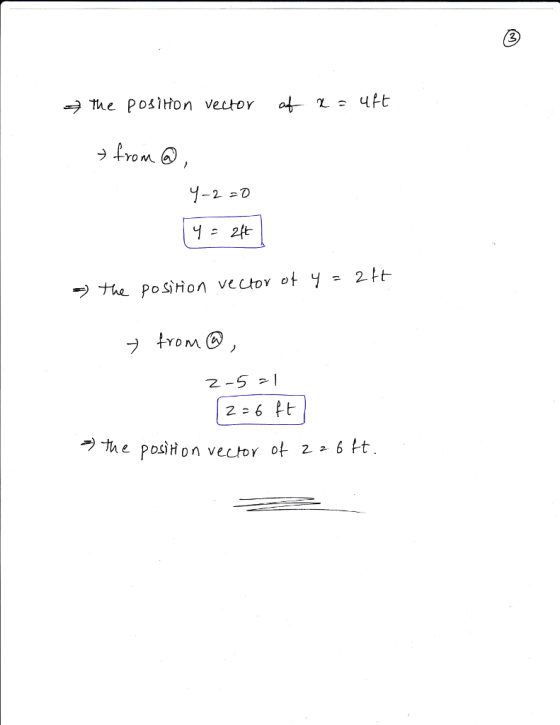 ③
⇒ the position vector of x = 4ft
→ from ⓐ,
y-2=0
y = 2ft
⇒ the position vector of y = 2ft
→ from ⓐ,
z-5=1
z=6 ft
⇒ the position vector of z = 6 ft.